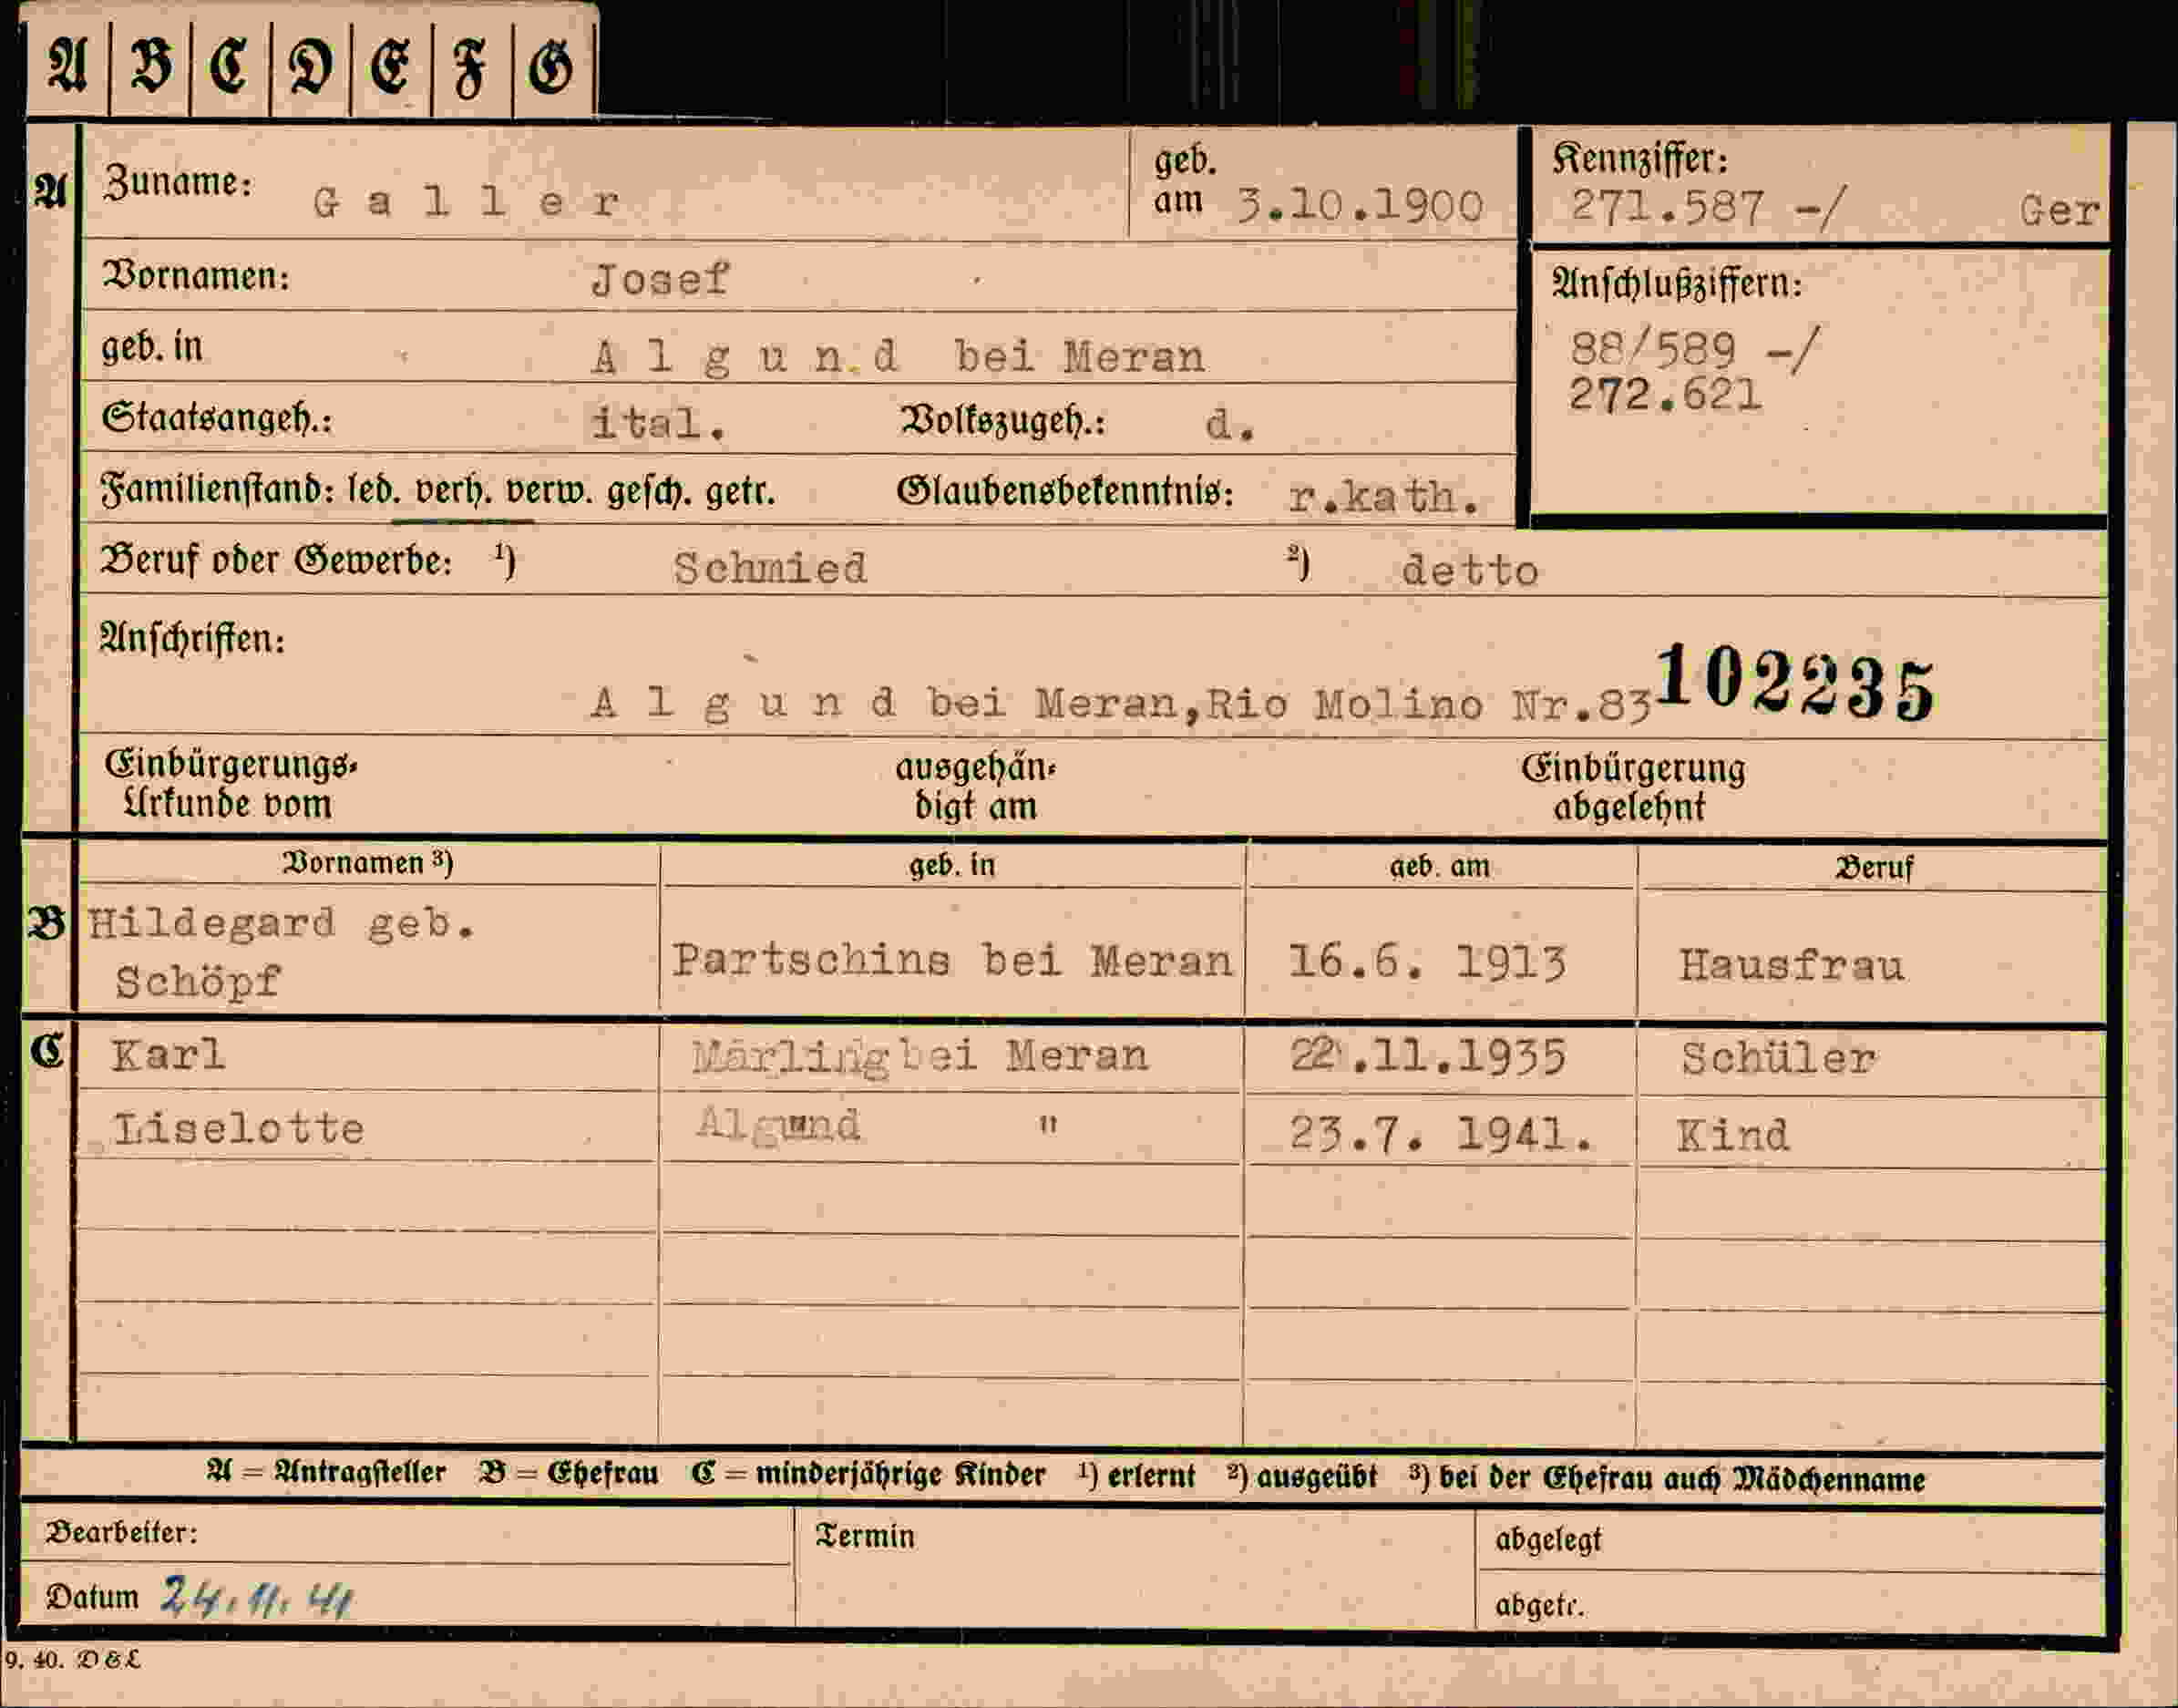 A B C D E F G
A Zuname: Galler geb. am 3.10.1900
Kennziffer: 271.587 -/ Ger
Vornamen: Josef
Anschlußziffern:
88/589 -/
272.621
geb. in Algund bei Meran
Staatsangeh.: ital. Volkszugeh.: d.
Familienstand: led. verh. verw. gesch. getr. Glaubensbekenntnis: r.kath.
Beruf oder Gewerbe: ¹) Schmied ²) detto
Anschriften:
Algund bei Meran,Rio Molino Nr.83 102235
Einbürgerungs-Urkunde vom ausgehändigt am Einbürgerung abgelehnt
Vornamen ³) geb. in geb. am Beruf
B Hildegard geb. Schöpf Partschins bei Meran 16.6. 1913 Hausfrau
C Karl Marling bei Meran 22.11.1935 Schüler
Liselotte Algund " 23.7. 1941. Kind
A = Antragsteller B = Ehefrau C = minderjährige Kinder ¹) erlernt ²) ausgeübt ³) bei der Ehefrau auch Mädchenname
Bearbeiter: Termin abgelegt
Datum 24.11.41 abgetr.
9. 40. D & L